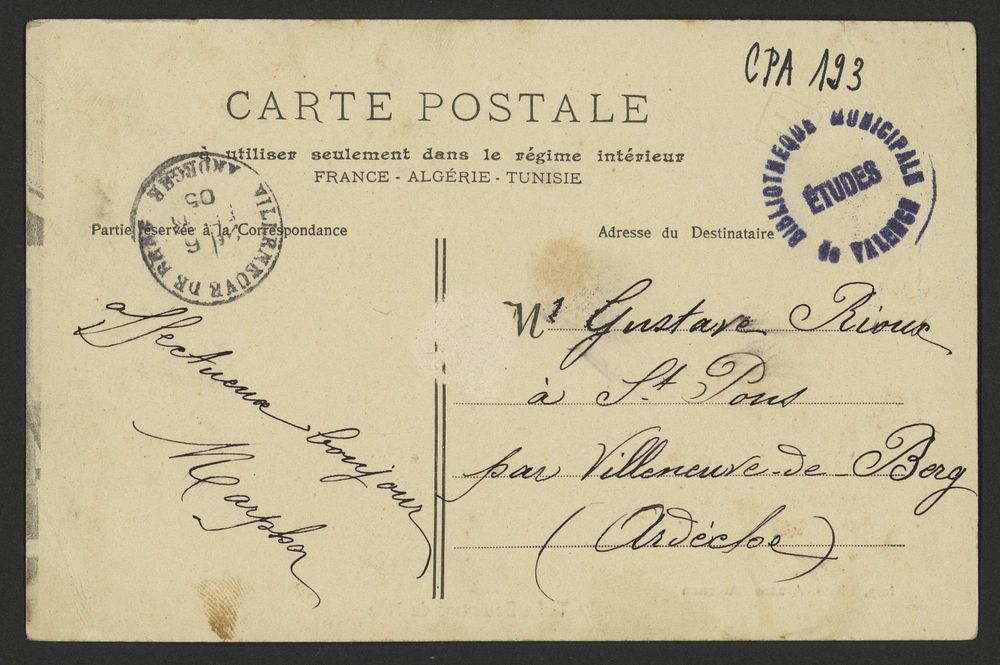 CPA 193
CARTE POSTALE
à utiliser seulement dans le régime intérieur
FRANCE - ALGÉRIE - TUNISIE
Partie réservée à la Correspondance
Adresse du Destinataire
BIBLIOTHEQUE MUNICIPALE
ÉTUDES
DE VALENCE
VILLENEUVE DE BERG
ARDECHE
6
05
affectueux bonjour
Mr Gustave Rioux
à St Pons
par Villeneuve-de-Berg
(Ardèche)